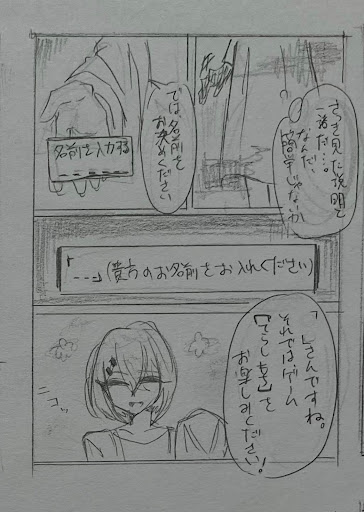 さっき見た説明と
一緒だ…。
なんだ、
簡単じゃないか
では、名前を
お教えください
名前を入力する
「---」(貴方のお名前をお入れください)
「 」さんですね。
それではゲーム
を
お楽しみください!
ニコッ